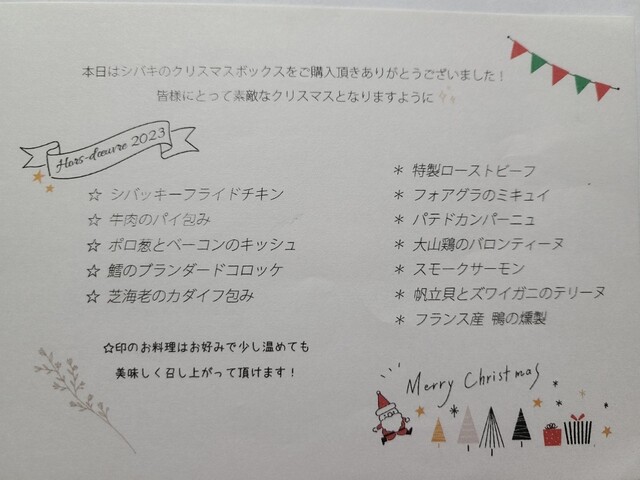 本日はシバキのクリスマスボックスをご購入頂きありがとうございました！
皆様にとって素敵なクリスマスとなりますように
Hors-d'œuvre 2023
☆ シバッキーフライドチキン
☆ 牛肉のパイ包み
☆ ポロ葱とベーコンのキッシュ
☆ 鱈のブランダードコロッケ
☆ 芝海老のカダイフ包み
☆印のお料理はお好みで少し温めても
美味しく召し上がって頂けます！
＊ 特製ローストビーフ
＊ フォアグラのミキュイ
＊ パテドカンパーニュ
＊ 大山鶏のバロンティーヌ
＊ スモークサーモン
＊ 帆立貝とズワイガニのテリーヌ
＊ フランス産 鴨の燻製
Merry Christmas